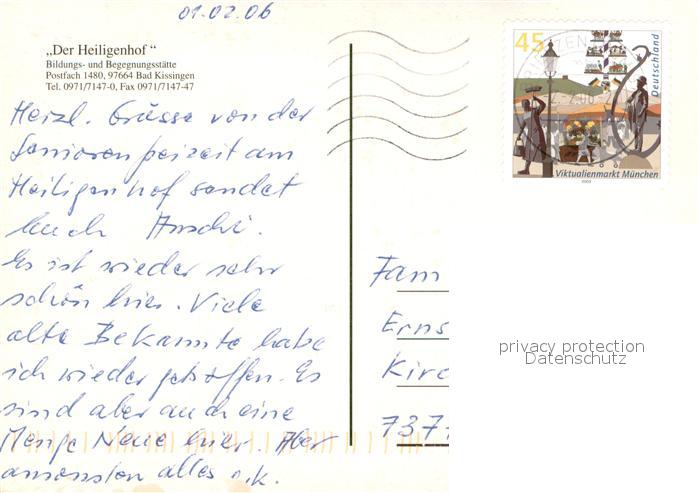 01.02.06
„Der Heiligenhof“
Bildungs- und Begegnungsstätte
Postfach 1480, 97664 Bad Kissingen
Tel. 0971/7147-0, Fax 0971/7147-47
Herzl. Grüsse von der
Seniorenfreizeit am
Heiligenhof sendet
Euch
Es ist wieder sehr
schön hier. Viele
alte Bekannte habe
ich wieder getroffen. Es
sind aber auch eine
Menge Neue hier. Aber
ansonsten alles o.k.
45
Deutschland
Viktualienmarkt München
2003
Fam
Erns
Kirc
737
privacy protection
Datenschutz